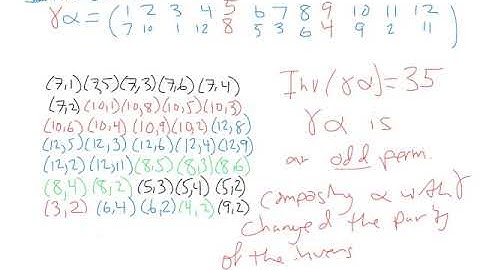 γα = ( 1 2 3 4 5 6 7 8 9 10 11 12
7 10 1 12 8 5 3 6 4 9 2 11 )
(7,1)(7,5)(7,3)(7,6)(7,4)
(7,2)(10,1)(10,8)(10,5)(10,3)
(10,6)(10,4)(10,9)(10,2)(12,8)
(12,5)(12,3)(12,6)(12,4)(12,9)
(12,2)(12,11)(8,5)(8,3)(8,6)
(8,4)(8,2)(5,3)(5,4)(5,2)
(3,2)(6,4)(6,2)(4,2)(9,2)
Inv(γα)=35
γα is
an odd perm.
composing α with γ
changed the parity
of the invers